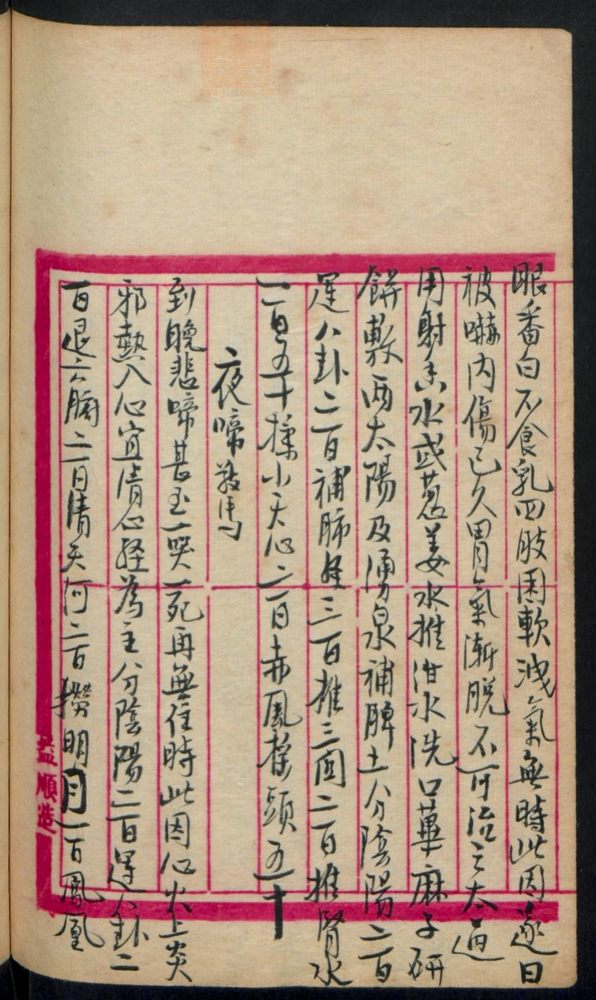 眼番白不食乳四肢困軟洩氣無時此因逐日
被嚇內傷已久胃氣漸脫不可治之太過
用射香水或葱姜水推泔水洗口萆麻子研
餅敷兩太陽及湧泉補脾土分陰陽二百
運八卦二百補肺經三百推三関二百推腎水
一百五十揉小天心二百赤鳳搖頭五十
夜啼驚
到晚悲啼甚至一哭一死再無住時此因心火上炎
邪熱入心宜清心経為主分陰陽二百運八卦二
百退六腑二百清天河二百撈明月一百鳳凰
益順造